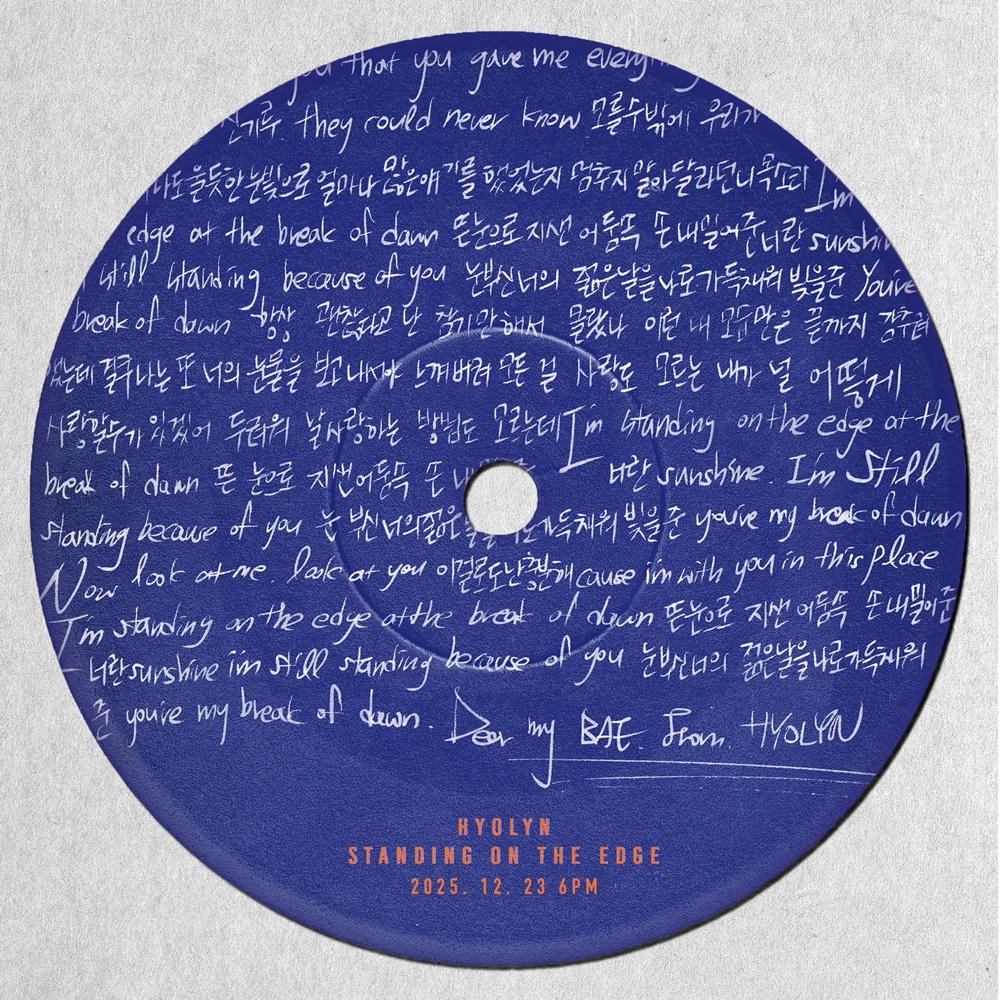 you that you gave me
신기루. they could never know 모를수밖에 우리가
나도 울듯한 눈빛으로 얼마나 많은 얘기를 했었는지 멈추지 말아달라던 너 목소리 I'm
edge at the break of dawn 뜬눈으로 지샌 어둠속 손내밀어준 너란 sunshin
still standing because of you 눈부신너의 젊은날을 나로가득채워 빛을준 You're
break of dawn 항상 괜찮다고 난 참기만해서 몰랐나 이런 내 모습만은 끝까지 감추려
했는데 결국 나는 또 너의 눈물을 보고 내서야 느껴버려 모든 걸 사랑도 모르는 내가 널 어떻게
사랑할수가 있겠어 두려워 널 사랑하는 방법도 모르는데 I'm standing on the edge at the
break of dawn 뜬 눈으로 지샌 어둠속 손 내 너란 sunshine. I'm Still
standing because of you 눈 부신 너의 젊은 가득채워 빛을 준 you're my break of dawn
Now look at me. look at you 이걸로도 난 충분해 cause i'm with you in this place
I'm standing on the edge at the break of dawn 뜬눈으로 지샌 어둠속 손내밀어준
너란 sunshine i'm still standing because of you 눈부신 너의 젊은날을 나로가득채워
준 you're my break of dawn. Dear my BAE. From. HYOLYN
HYOLYN
STANDING ON THE EDGE
2025. 12. 23 6PM